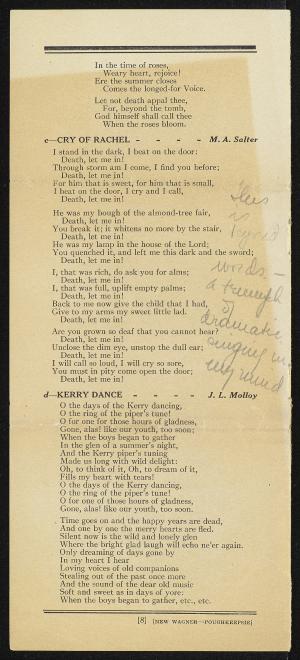 In the time of roses,
Weary heart, rejoice!
Ere the summer closes
Comes the longed-for Voice.
Let not death appal thee,
For, beyond the tomb,
God himself shall call thee
When the roses bloom.
c—CRY OF RACHEL - - - - M. A. Salter
I stand in the dark, I beat on the door:
Death, let me in!
Through storm am I come, I find you before;
Death, let me in!
For him that is sweet, for him that is small,
I beat on the door, I cry and I call,
Death, let me in!
He was my bough of the almond-tree fair,
Death, let me in!
You break it; it whitens no more by the stair,
Death, let me in!
He was my lamp in the house of the Lord;
You quenched it, and left me this dark and the sword;
Death, let me in!
I, that was rich, do ask you for alms;
Death, let me in!
I, that was full, uplift empty palms;
Death, let me in!
Back to me now give the child that I had,
Give to my arms my sweet little lad.
Death, let me in!
Are you grown so deaf that you cannot hear?
Death, let me in!
Unclose the dim eye, unstop the dull ear;
Death, let me in!
I will call so loud, I will cry so sore,
You must in pity come open the door;
Death, let me in!
This
is beyond
words —
a triumph
of
dramatic
singing in
my mind
d—KERRY DANCE - - - - J. L. Molloy
O the days of the Kerry dancing,
O the ring of the piper's tune!
O for one of those hours of gladness,
Gone, alas! like our youth, too soon;
When the boys began to gather
In the glen of a summer's night,
And the Kerry piper's tuning
Made us long with wild delight:
Oh, to think of it, Oh, to dream of it,
Fills my heart with tears!
O the days of the Kerry dancing,
O the ring of the piper's tune!
O for one of those hours of gladness,
Gone, alas! like our youth, too soon.
Time goes on and the happy years are dead,
And one by one the merry hearts are fled.
Silent now is the wild and lonely glen
Where the bright glad laugh will echo ne'er again.
Only dreaming of days gone by
In my heart I hear
Loving voices of old companions
Stealing out of the past once more
And the sound of the dear old music
Soft and sweet as in days of yore:
When the boys began to gather, etc., etc.
[8] [NEW WAGNER—POUGHKEEPSIE]